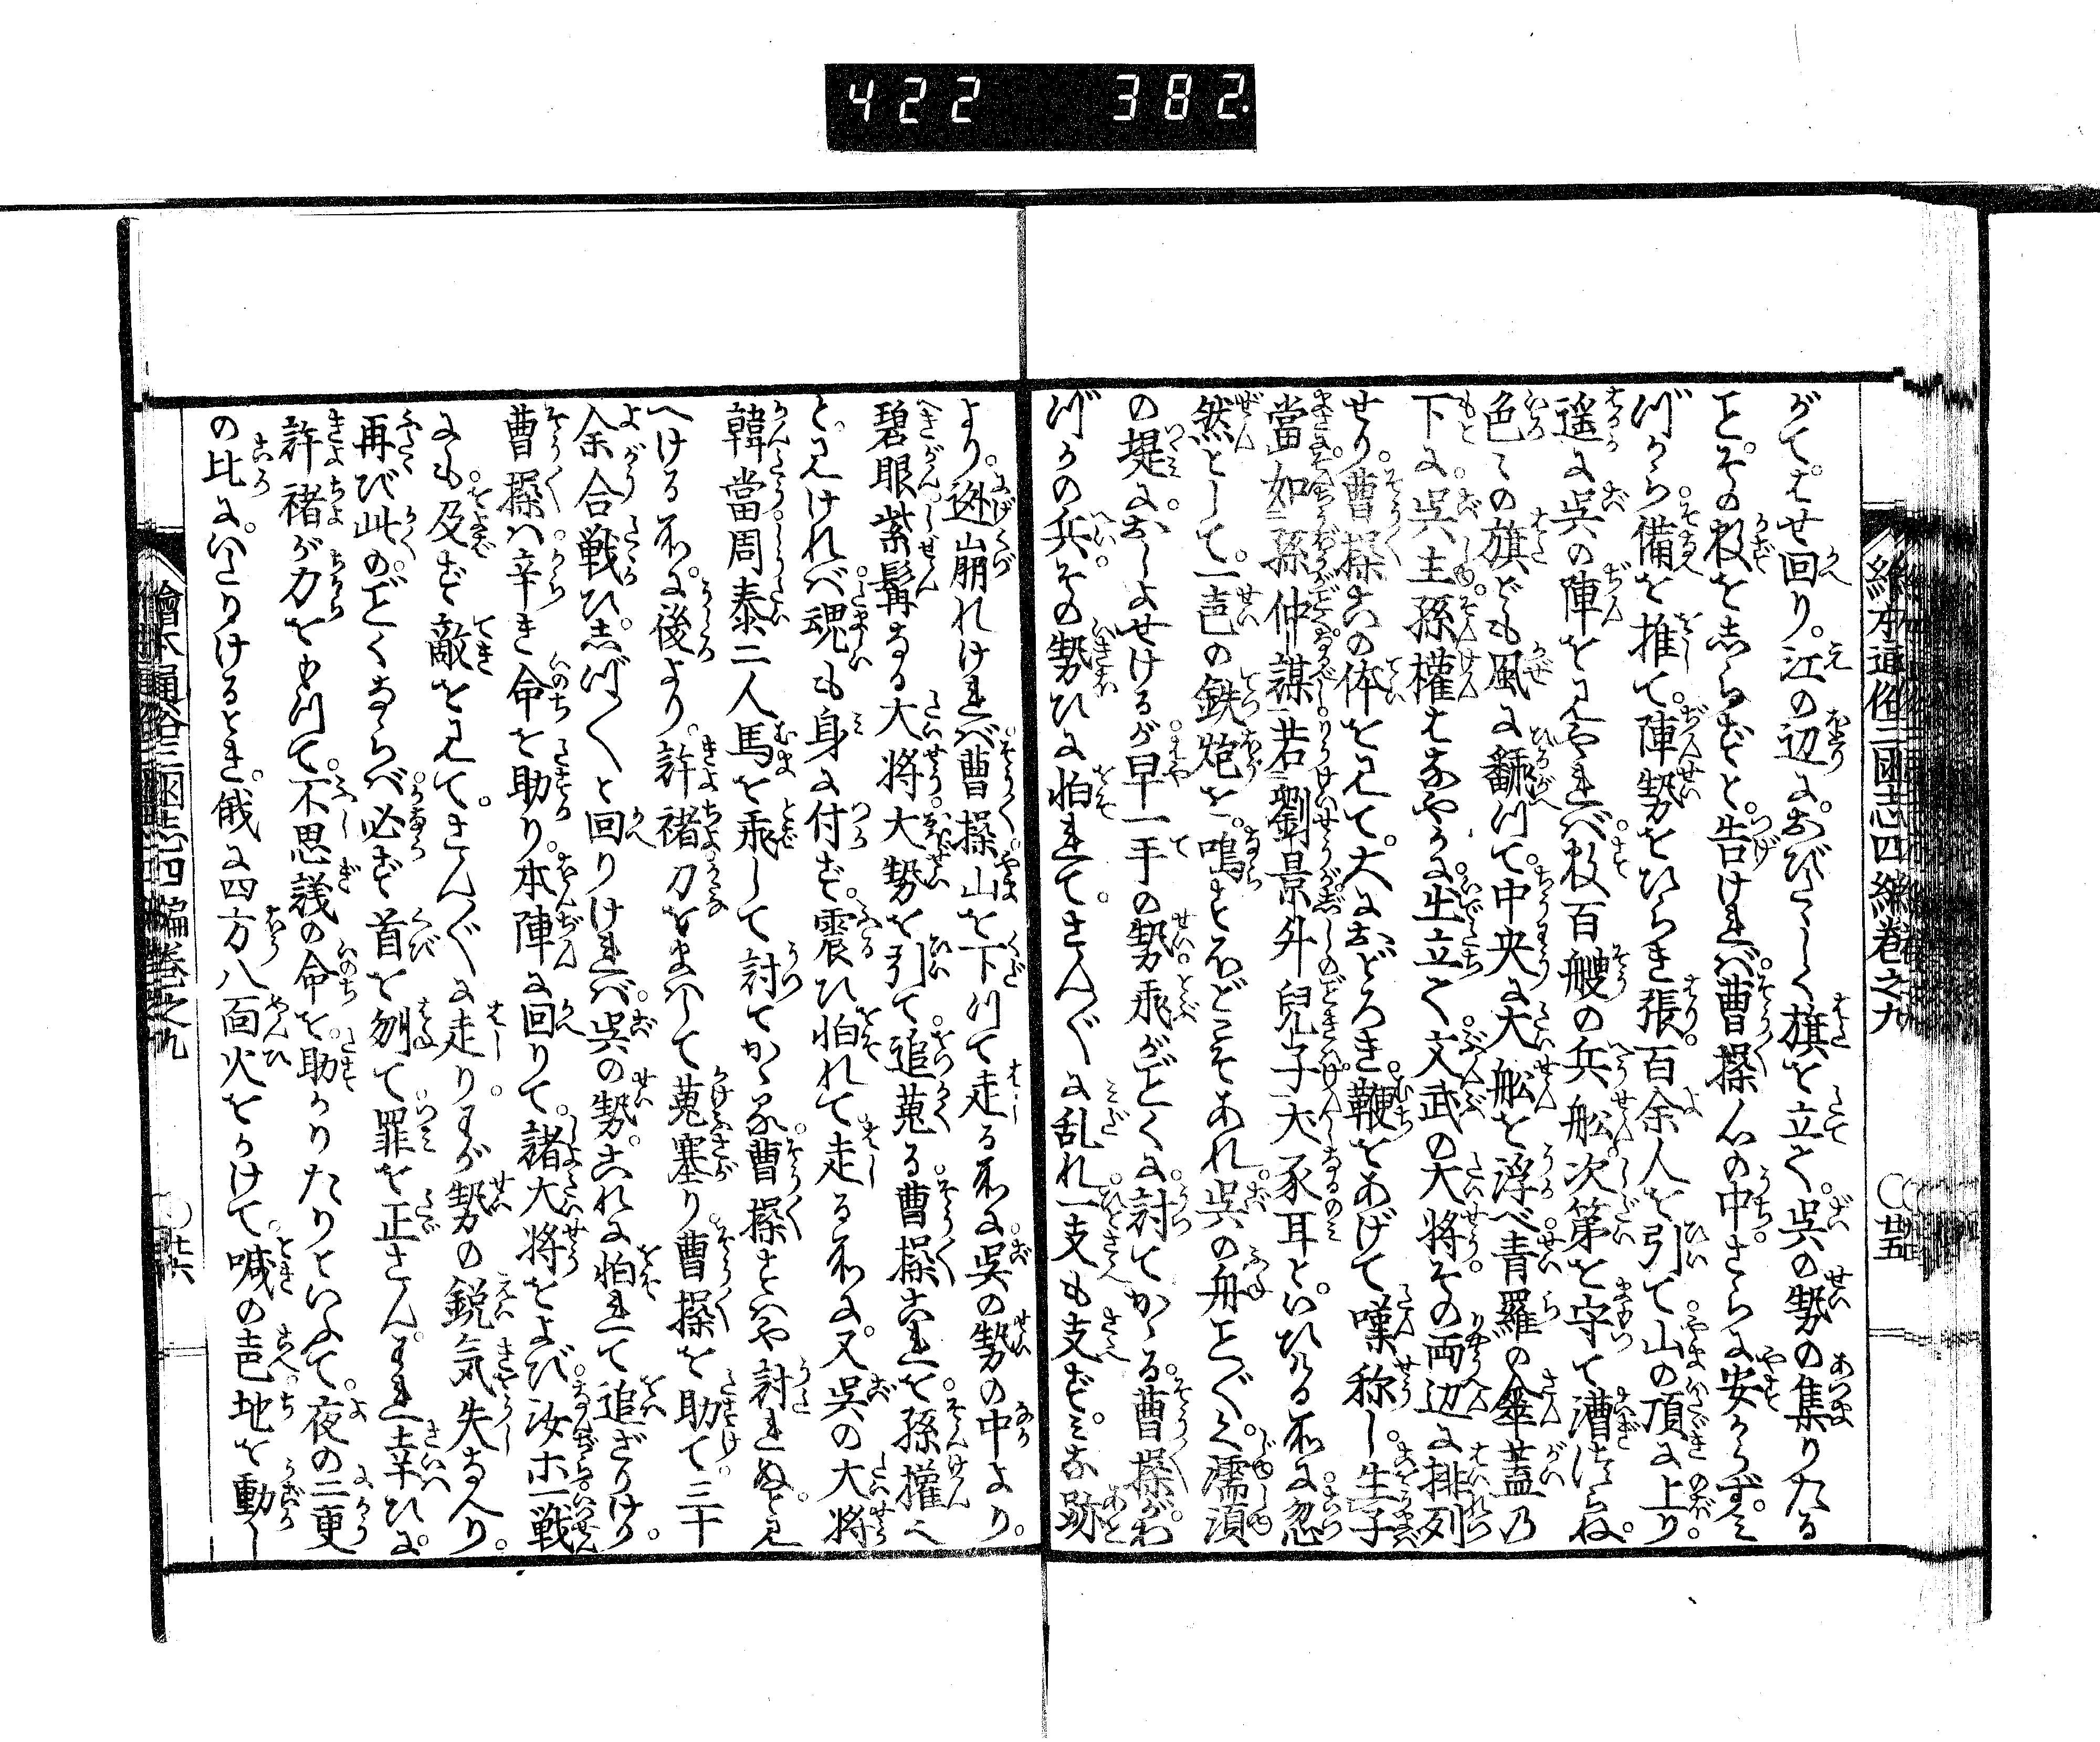 422 382.
繪本通俗三國志四編卷之九 〇廿五
がて。はせ回り。江の辺に。おびたゝしく旗を立て。呉の勢の集りたる
こと。その数を志らずと。告ければ曹操心の中。さらに安からず。み
づから備を推て。陣勢をひらき張。百余人を引て。山の頂に上り
遥に呉の陣を見やれば。数百艘の兵舩。次第を守て漕つらね。
色々の旗ども風に飜つて。中央に大舩を浮べ青羅の傘蓋乃
下に。呉主孫權はなやかに出立て。文武の大将その両辺に排列
せり。曹操此の体を見て。大におどろき。鞭をあげて嘆称し。生子
當如孫仲謀若劉景升兒子犬豕耳と。いひける所に。忽
然として。一声の鉄炮を。鳴すとほどこそあれ。呉の舟こと〴〵く。濡須
の堤に。おしよせけるが早一手の勢飛がごとくに。討てかゝる。曹操がわ
づかの兵。その勢ひに怕れて。さん〴〵に乱れ一支も支ず。みな跡
より。迯崩れければ曹操。山を下つて走る所に。呉の勢の中より。
碧眼紫髯なる大将大勢を引て。追蒐る。曹操これを。孫權へ
と。見ければ魂も身に付ず。震ひ怕れて走る所に。又呉の大将
韓當周泰二人馬を飛して討てかゝる曹操すはや討れぬと。見
へける所に。後より。許褚刀をまはして蒐塞り。曹操を助て。三十
余合戦ひ。志づ〳〵と回りければ。呉の勢。これに怕れて追ざりけり。
曹操ハ。辛き命を助り。本陣に回りて。諸大将をよび。汝等一戦
にも。及ばず敵を見て。さん〴〵に走り。わが勢の鋭気失なへり。
再び此のごとくならば必ず首を刎て。罪を正さん。われ幸ひに。
許褚が力をもつて。不思議の命を。助かりたりといふて。夜の二更
の比に。いたりけるとき。俄に四方八面火をかけて。喊の声。地を動し
繪本通俗三國志四編卷之九 〇廿六